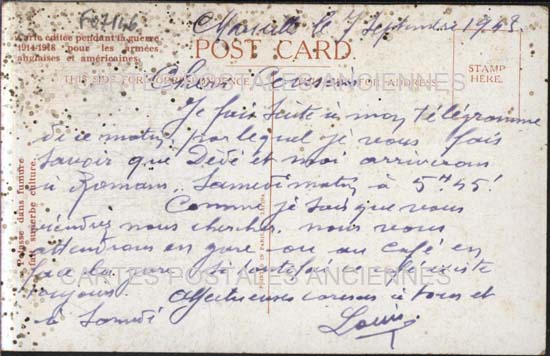 F07146
Marseille le 7 Septembre 1943
Carte éditée pendant la guerre
1914-1918 pour les armées
anglaises et américaines.
POST CARD.
THIS SIDE FOR CORRESPONDENCE
FOR ADDRESS
STAMP
HERE.
CARTES POSTALES ANCIENNES
Chers Cousins
Je fais suite a mon télégramme
de ce matin, par lequel je vous fais
savoir que Dédé et moi arriverons
à Romans. Samedi matin à 5H45!
Comme je sais que vous
viendrez nous chercher, nous vous
attendrons en gare ou au café en
face la gare, si toutefois il existe
toujours.
Affectueuses caresses à tous et
à Samedi
Louis
Potasse dans fumure
fait superbe culture.
CARTES POSTALES ANCIENNES